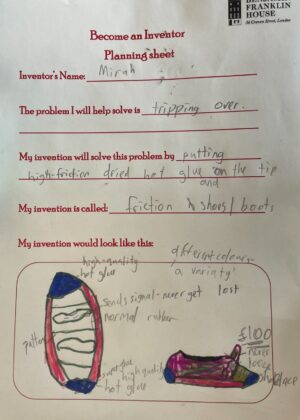 BENJAMIN
FRANKLIN
HOUSE
36 Craven Street, London
Become an Inventor
Planning sheet
Inventor's Name: Mirah
The problem I will help solve is tripping over.
My invention will solve this problem by putting
high-friction dried hot glue on the tip
and
My invention is called: friction shoes/boots
My invention would look like this: different colours
a variety
high-quality
hot glue
sends signal-never get lost
normal rubber
£100
never
high quality
hot glue